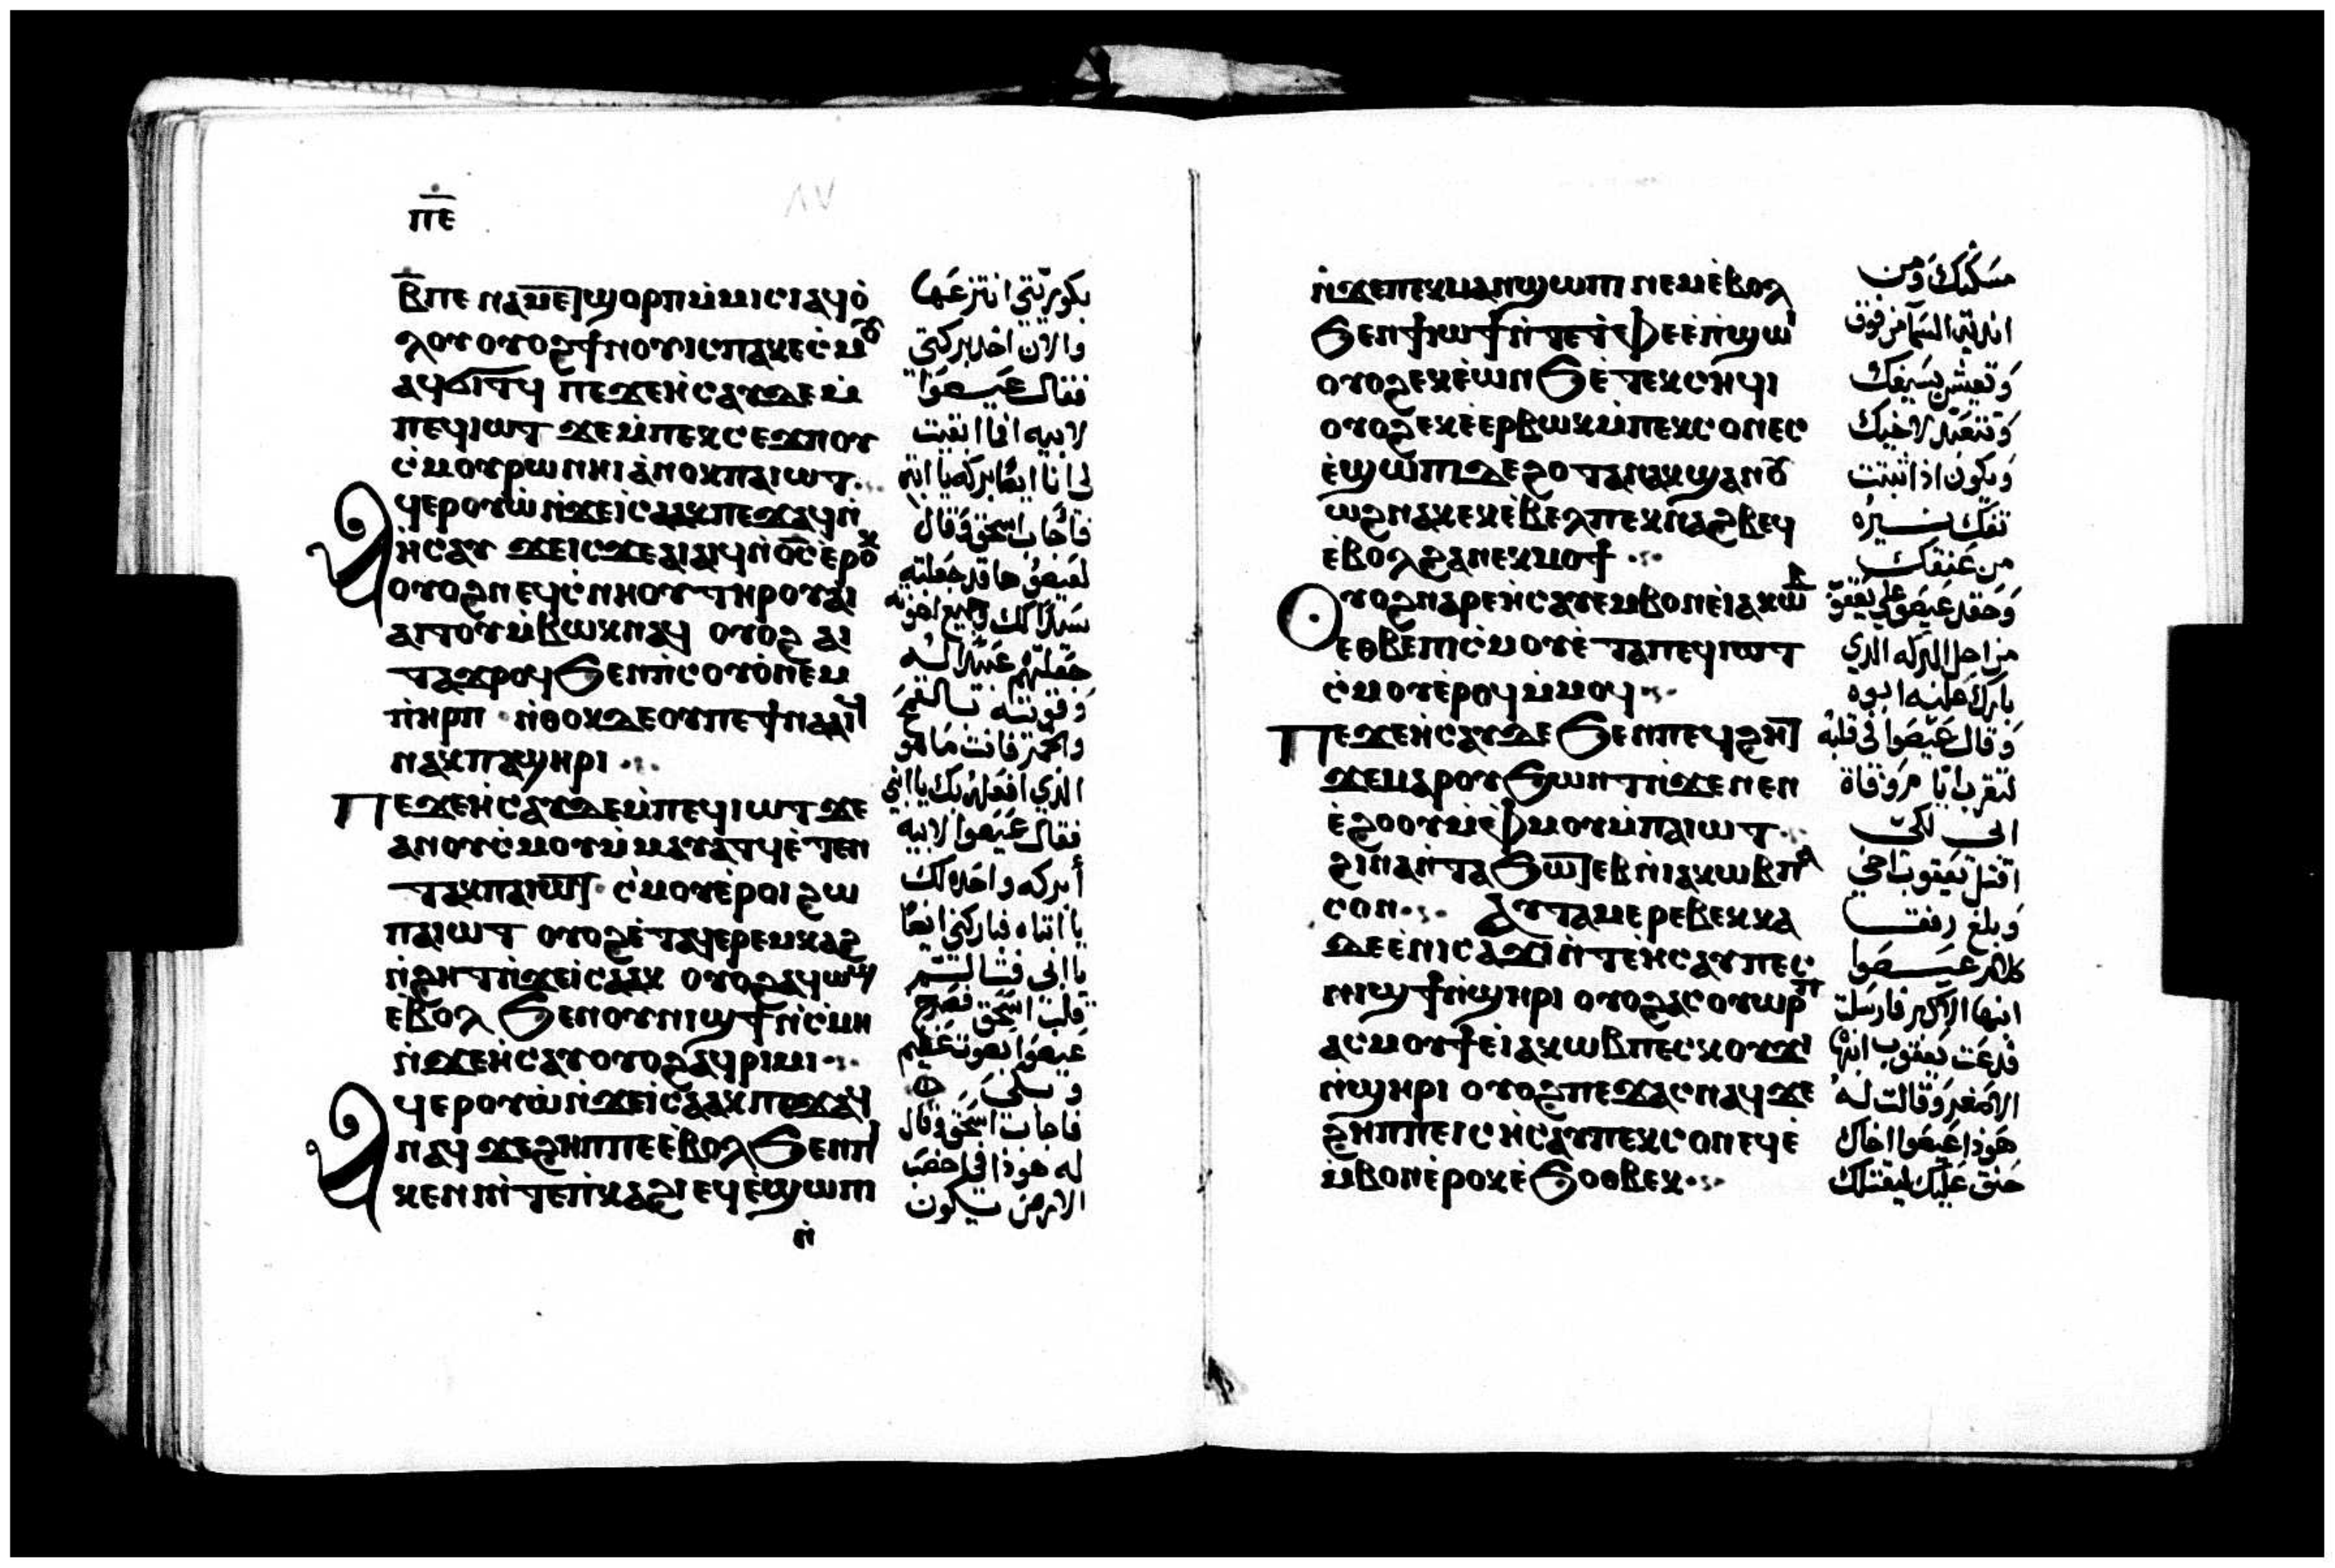 ⲡⲉ
٨٧
ⲃ̅ⲡⲉ ⲛⲁⲙⲉⲧϣⲟⲣⲡⲙ̀ⲙⲓⲥⲓⲁϥⲟ̀
ⲗⲟⲩ ⲟⲩⲟϩϯⲛⲟⲩⲓⲥⲡⲁⲕⲉⲥ̀ⲙⲟⲩ
ⲁϥϭⲓⲧϥ ⲡⲉϫⲉⲏ̀ⲥⲁⲩⲇⲉⲙ̀
ⲡⲉϥⲓⲱⲧ ϫⲉⲙ̀ⲡⲉⲕⲥⲉϫⲡⲟⲩ
ⲥ̀ⲙⲟⲩⲣⲱⲛⲏⲓⲁ̀ⲛⲟⲕⲡⲁⲓⲱⲧ
ⲁϥⲉⲣⲟⲩⲱ̀ⲛ̀ϫⲉⲓ̀ⲥⲁⲁⲕⲡⲉϫⲁϥⲛ̀
ⲏ̀ⲥⲁⲩ ϫⲉⲓⲥϫⲉⲁⲓⲁⲓϥⲛ̀ⲟ̅ⲥ̅ⲉ̀ⲣⲟⲕ
ⲟⲩⲟϩⲛⲉϥⲥ̀ⲛⲏⲟⲩⲧⲏⲣⲟⲩⲁⲓ
ⲁⲓⲧⲟⲩⲙ̀ⲃⲱⲕⲛⲁϥ ⲟⲩⲟϩ ⲁⲓ
ⲧⲁϫⲣⲟϥϧⲉⲛⲡⲓⲥⲟⲩⲟ̀ⲛⲉⲙ
ⲡⲓⲏⲣⲡ ⲛ̀ⲑⲟⲕⲇⲉⲟⲩⲡⲉϯⲛⲁⲁⲓϥ
ⲛⲁⲕⲡⲁϣⲏⲣⲓ
ⲡⲉϫⲉⲏ̀ⲥⲁⲩⲇⲉⲙ̀ⲡⲉϥⲓⲱⲧ ϫⲉ
ⲁⲛⲟⲩⲥ̀ⲙⲟⲩⲙ̀ⲙⲁⲩⲁⲧϥⲉ̀ⲧⲉⲛ
ⲧⲁⲕⲡⲁⲓⲱⲧ ⲥ̀ⲙⲟⲩⲉ̀ⲣⲟⲓ ϩⲱ
ⲡⲁⲓⲱⲧ ⲟⲩⲟϩⲉ̀ⲧⲁϥⲉⲣⲉⲙⲕⲁϩ
ⲛ̀ϩⲏⲧⲛ̀ϫⲉⲓ̀ⲥⲁⲁⲕ ⲟⲩⲟϩⲁϥⲱϣ
ⲉ̀ⲃⲟⲗ ϧⲉⲛⲟⲩⲛⲓϣϯⲛ̀ⲥ̀ⲙⲏ
ⲛ̀ϫⲉⲏ̀ⲥⲁⲩⲟⲩⲟϩⲁϥⲣⲓⲙⲓ
ⲁϥⲉⲣⲟⲩⲱ̀ⲛ̀ϫⲉⲓ̀ⲥⲁⲁⲕⲡⲉϫⲁϥ
ⲛⲁϥ ϫⲉϩⲏⲡⲡⲉⲉ̀ⲃⲟⲗϧⲉⲛⲡⲓ
ⲕⲉⲛⲛⲓⲛ̀ⲧⲉⲡ̀ⲕⲁϩⲓⲉϥⲉ̀ϣⲱⲡⲓ
ⲛ̀
بكوريتي انتزعها
والان اخذ بركتي
فقال عيصوا
لابيه اما ابقيت
لي انا ايضا بركه يا ابتِ
فاجاب اسحق وقال
لعيصو ها قد جعلته
سيدا لك وجميع اخوته
جعلتهم عبيدا له
وقويته بالقمح
والخمر فانت ما هو
الذي افعله بك يا ابني
فقال عيصوا لابيه
أبركه واحده لك
يا ابتاه فباركني ايضا
يا ابي
قلب اسحق فصرخ
عيصوا بصوت عظيم
وبكى
فاجاب اسحق وقال
له هوذا في خصب
الارض يكون
ⲛ̀ϫⲉⲡⲉⲕⲙⲁⲛϣⲱⲡⲓ ⲛⲉⲙⲉ̀ⲃⲟⲗ
ϧⲉⲛϯⲓⲱϯⲛ̀ⲧⲉⲧ̀ⲫⲉⲉ̀ⲡ̀ϣⲱⲓ
ⲟⲩⲟϩⲉⲕⲉ̀ⲱⲛϧⲉ̀ⲧⲉⲕⲥⲏϥⲓ
ⲟⲩⲟϩⲉⲕⲉ̀ⲉⲣⲃⲱⲕⲙ̀ⲡⲉⲕⲥⲟⲛⲉⲥ
ⲉ̀ϣⲱⲡⲓⲇⲉϩⲟⲧⲁⲛⲁⲕϣⲁⲛⲟⲩ
ⲱϩⲛⲁⲕⲉⲕⲉ̀ⲃⲉⲗⲡⲉⲕⲛⲁϩⲃⲉϥ
ⲉ̀ⲃⲟⲗϩⲁⲛⲉⲕⲙⲟϯ
ⲟⲩⲟϩⲛⲁⲣⲉⲏ̀ⲥⲁⲩⲉⲙⲃⲟⲛⲉ̀ⲓⲁⲕⲱⲃ
ⲉⲑⲃⲉⲡⲓⲥ̀ⲙⲟⲩⲉ̀ⲧⲁⲡⲉϥⲓⲱⲧ
ⲥ̀ⲙⲟⲩⲉ̀ⲣⲟϥⲙ̀ⲙⲟϥ
ⲡⲉϫⲉⲏ̀ⲥⲁⲩⲇⲉϧⲉⲛⲡⲉϥϩⲏⲧ
ϫⲉⲙⲁⲣⲟⲩϧⲱⲛⲧⲛ̀ϫⲉⲛⲉⲛ
ⲉ̀ϩⲟⲟⲩⲙ̀ⲫ̀ⲙⲟⲩⲙ̀ⲡⲁⲓⲱⲧ
ϩⲓⲛⲁⲛ̀ⲧⲁϧⲱⲧⲉⲃⲛ̀ⲓⲁⲕⲱⲃⲡⲁ
ⲥⲟⲛ ⲁⲩⲧⲁⲙⲉⲣⲉⲃⲉⲕⲕⲁ
ⲇⲉⲉ̀ⲛⲓⲥⲁϫⲓⲛ̀ⲧⲉⲏ̀ⲥⲁⲩⲡⲉⲥ
ⲛⲓϣϯⲛ̀ϣⲏⲣⲓ ⲟⲩⲟϩⲁⲥⲟⲩⲱⲣⲡ
ⲁⲥⲙⲟⲩϯⲉ̀ⲓⲁⲕⲱⲃⲡⲉⲥⲕⲟⲩϫⲓ
ⲛ̀ϣⲏⲣⲓ ⲟⲩⲟϩⲡⲉϫⲁⲥⲛⲁϥϫⲉ
ϩⲏⲡⲡⲉⲓⲥ ⲏ̀ⲥⲁⲩⲡⲉⲕⲥⲟⲛⲉϥⲉ̀
ⲙ̀ⲃⲟⲛⲉ̀ⲣⲟⲕⲉ̀ϧⲟⲑⲃⲉⲕ
مسكنك ومن
اندية السما من فوق
وتعيش بسيفك
وتتعبد لاخيك
ويكون اذا ثبتت
تفك نيره
من عنقك
وحقد عيصو على يعقوب
من اجل البركه الذي
باركه عليه ابوه
وقال عيصوا في قلبه
لتقرب ايام وفاة
ابي لكي
اقتل يعقوب اخي
وبلغ رفقا
كلام عيصوا
ابنها الاكبر فارسلت
فدعت يعقوب ابنها
الاصغر وقالت له
هوذا عيصوا اخاك
حنق عليك ليقتلك